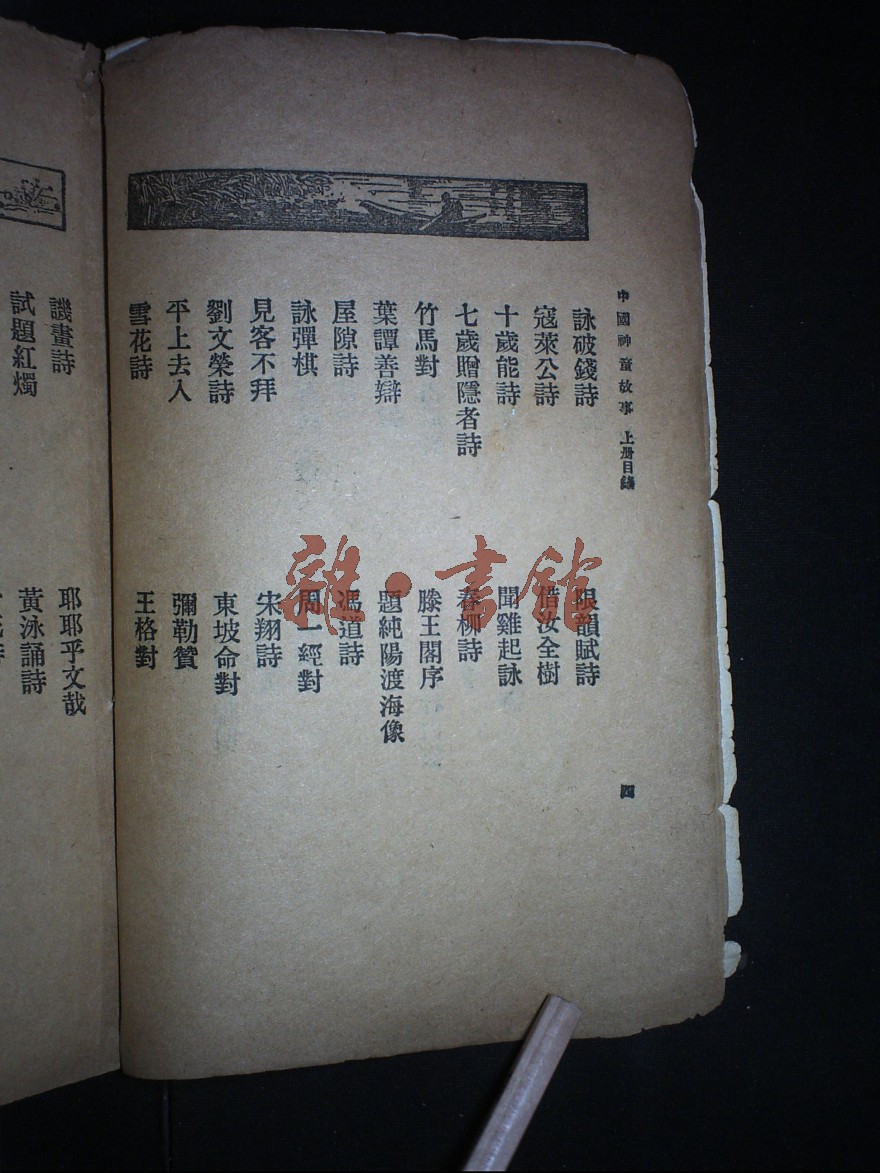 中國神童故事 上册目錄
四
詠破錢詩
寇萊公詩
十歲能詩
七歲贈隱者詩
竹馬對
葉譚善辯
屋隙詩
詠彈棋
見客不拜
劉文榮詩
平上去入
雪花詩
限韻賦詩
借汝全樹
聞雞起詠
春柳詩
滕王閣序
題純陽渡海像
馮道詩
周一經對
宋翔詩
東坡命對
彌勒贊
王格對
譏畫詩
試題紅燭
耶耶乎文哉
黃泳誦詩
雜·書館